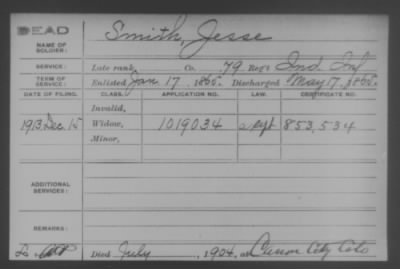 DEAD
Smith, Jesse
NAME OF SOLDIER:
SERVICE: Late rank, Co. 79 Reg't Ind. Inf
TERM OF SERVICE: Enlisted Jan. 17, 1865. Discharged May 17, 1865.
DATE OF FILING. CLASS. APPLICATION NO. LAW. CERTIFICATE NO.
Invalid,
1913. Dec. 15 Widow, 1019034 853,534
Minor,
ADDITIONAL SERVICES:
REMARKS:
Died July, 1904, at City Colo